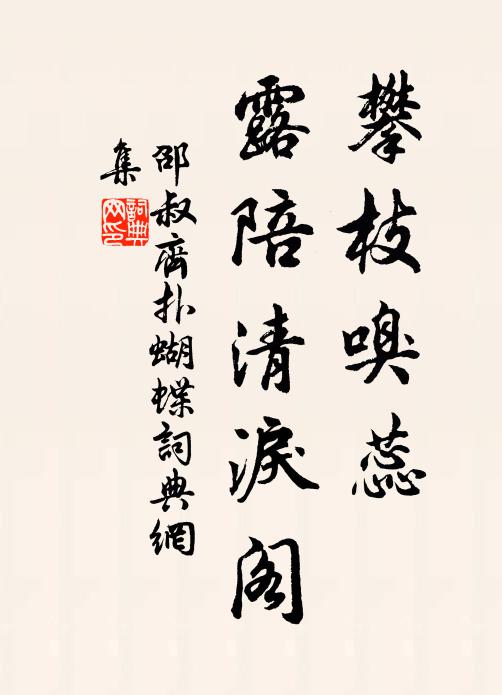 攀枝嗅蕊
露陪清淚阁
邵叔齊扑蝴蝶詞典網
集
詞典
网印